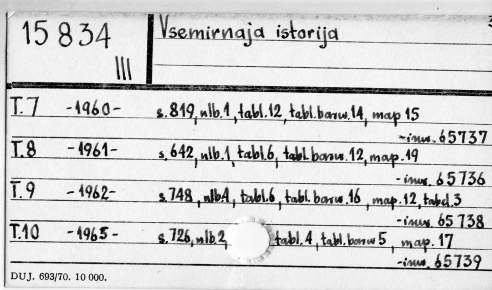 15 834 Vsemirnaja istorija
III
T.7 -1960- s.819, nlb.1, tabl.12, tabl.barw.14, map 15
-inw. 65737
T.8 -1961- s.642, nlb.1, tabl.6, tabl.barw.12, map.19
-inw. 65736
T.9 -1962- s.748, nlb4, tabl.6, tabl.barw.16, map.12, tabel.3
-inw. 65738
T.10 -1965- s.726, nlb.2 tabl.4, tabl.barw5, map.17
-inw. 65739
DUJ. 693/70. 10 000.